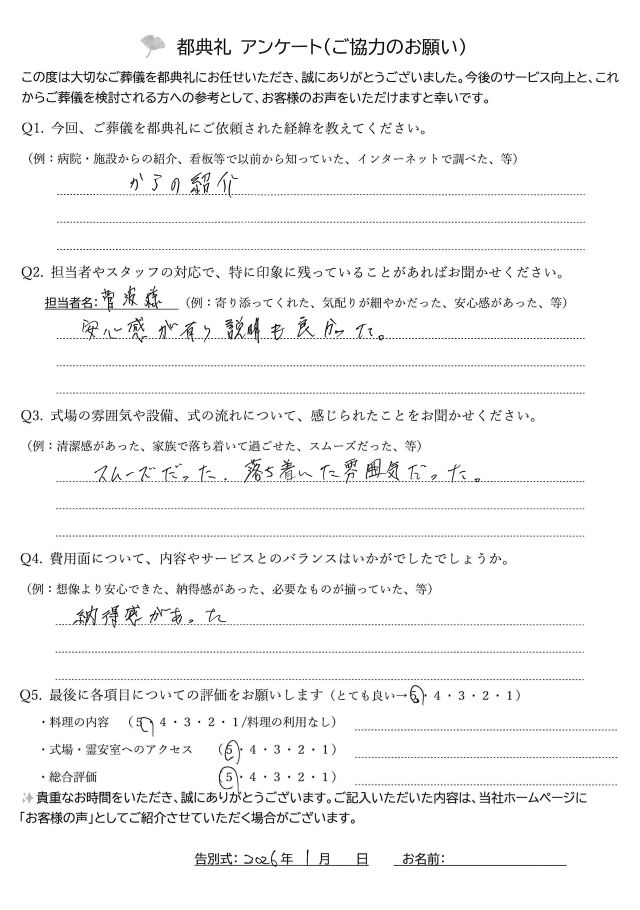 都典礼 アンケート(ご協力のお願い)
この度は大切なご葬儀を都典礼にお任せいただき、誠にありがとうございました。今後のサービス向上と、これ
からご葬儀を検討される方への参考として、お客様のお声をいただけますと幸いです。
Q1. 今回、ご葬儀を都典礼にご依頼された経緯を教えてください。
(例:病院・施設からの紹介、看板等で以前から知っていた、インターネットで調べた、等)
からの紹介
Q2. 担当者やスタッフの対応で、特に印象に残っていることがあればお聞かせください。
担当者名: 菅波様 (例:寄り添ってくれた、気配りが細やかだった、安心感があった、等)
安心感が有り説明も良かった。
Q3. 式場の雰囲気や設備、式の流れについて、感じられたことをお聞かせください。
(例:清潔感があった、家族で落ち着いて過ごせた、スムーズだった、等)
スムーズだった. 落ち着いた雰囲気だった。
Q4. 費用面について、内容やサービスとのバランスはいかがでしたでしょうか。
(例:想像より安心できた、納得感があった、必要なものが揃っていた、等)
納得感があった
Q5. 最後に各項目についての評価をお願いします(とても良い→5・4・3・2・1)
・料理の内容 (5・4・3・2・1/料理の利用なし)
・式場・霊安室へのアクセス (5・4・3・2・1)
・総合評価 (5・4・3・2・1)
✨貴重なお時間をいただき、誠にありがとうございます。ご記入いただいた内容は、当社ホームページに
「お客様の声」としてご紹介させていただく場合がございます。
告別式: 2026年 1月 日 お名前: